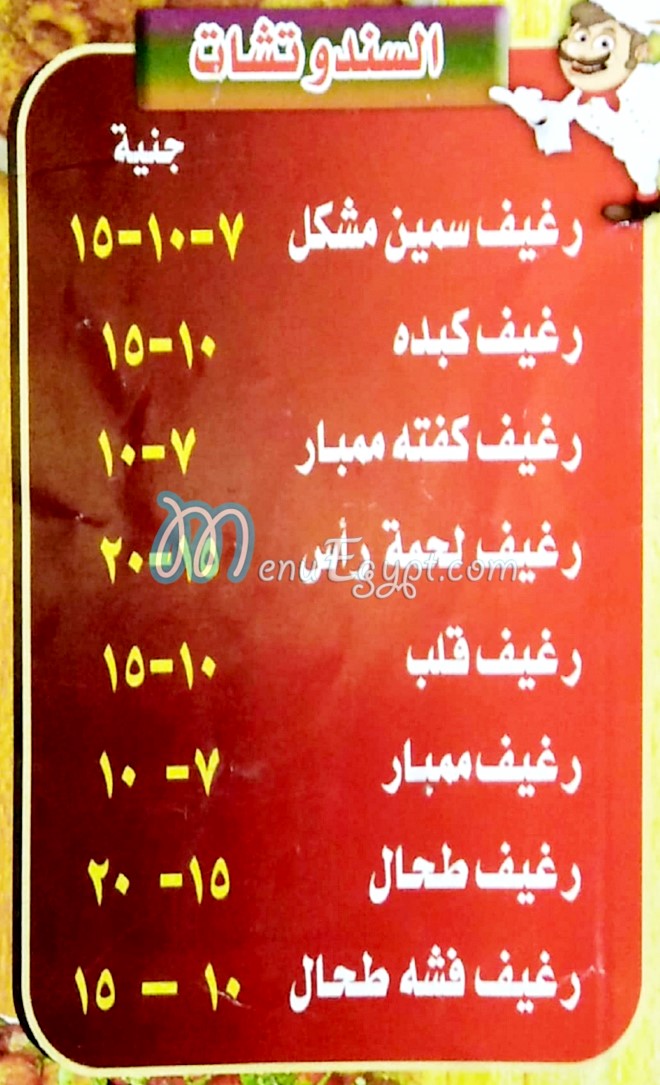 السندوتشات
جنية
رغيف سمين مشكل ٧-١٠-١٥
رغيف كبده ١٠-١٥
رغيف كفته ممبار ٧-١٠
رغيف لحمة رأس ١٥-٢٠
MenuEgypt.com
رغيف قلب ١٠-١٥
رغيف ممبار ٧- ١٠
رغيف طحال ١٥- ٢٠
رغيف فشه طحال ١٠ - ١٥